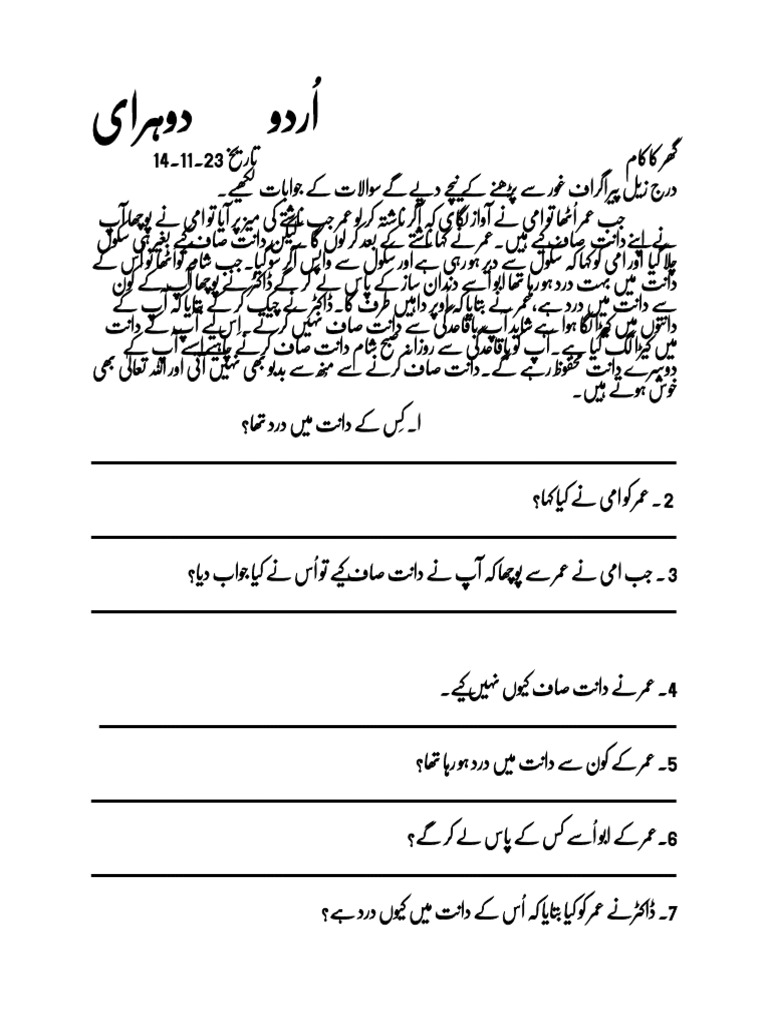 اُردو دوہرای
گھر کا کام تاریخ 14-11-23
درج زیل پیراگراف غور سے پڑھنے کے نیچے دیے گے سوالات کے جوابات لکھیے۔
جب عمر اُٹھا توامی نے آواز لگای کہ آکر ناشتہ کرلو عمر جب ناشتے کی میز پر آیا توامی نے پوچھا آپ
نے اپنے دانت صاف کیے ہیں۔ عمر نے کہا ناشتے کے بعد کر لوں گا ۔ لیکن دانت صاف کیے بغیر ہی سکول
چلا گیا اور امی کو کہا کہ سکول سے دیر ہورہی ہے اور سکول سے واپس آکر سوگیا۔ جب شام کو اُٹھا تو اُس کے
دانت میں بہت درد ہورہا تھا ابو اُسے دندان ساز کے پاس لے کر گے ڈاکٹر نے پوچھا آپ کے کون
سے دانت میں درد ہے، عمر نے بتایا کہ اُوپر داہیں طرف کا۔ ڈاکٹر نے چیک کر کے بتایا کہ آپ کے
دانتوں میں کیڑا لگا ہوا ہے شاید آپ باقاعدگی سے دانت صاف نہیں کرتے۔ اِس لیے آپ کے دانت
میں کیڑا لگ گیا ہے۔ آپ کو باقاعدگی سے روزانہ صبح شام دانت صاف کرنے چاہیے اسے آپ کے
دوسرے دانت محفوظ رہے گے۔ دانت صاف کرنے سے منھ سے بدبو بھی نہیں آتی اور اللہ تعالی بھی
خوش ہوتے ہیں۔
ا۔ کِس کے دانت میں درد تھا؟
2 ۔ عمر کو امی نے کیا کہا؟
3 ۔ جب امی نے عمر سے پوچھا کہ آپ نے دانت صاف کیے تو اُس نے کیا جواب دیا؟
4۔ عمر نے دانت صاف کیوں نہیں کیے۔
5۔ عمر کے کون سے دانت میں درد ہورہا تھا؟
6۔ عمر کے ابو اُسے کس کے پاس لے کر گے؟
7۔ ڈاکٹر نے عمر کو کیا بتایا کہ اُس کے دانت میں کیوں درد ہے؟